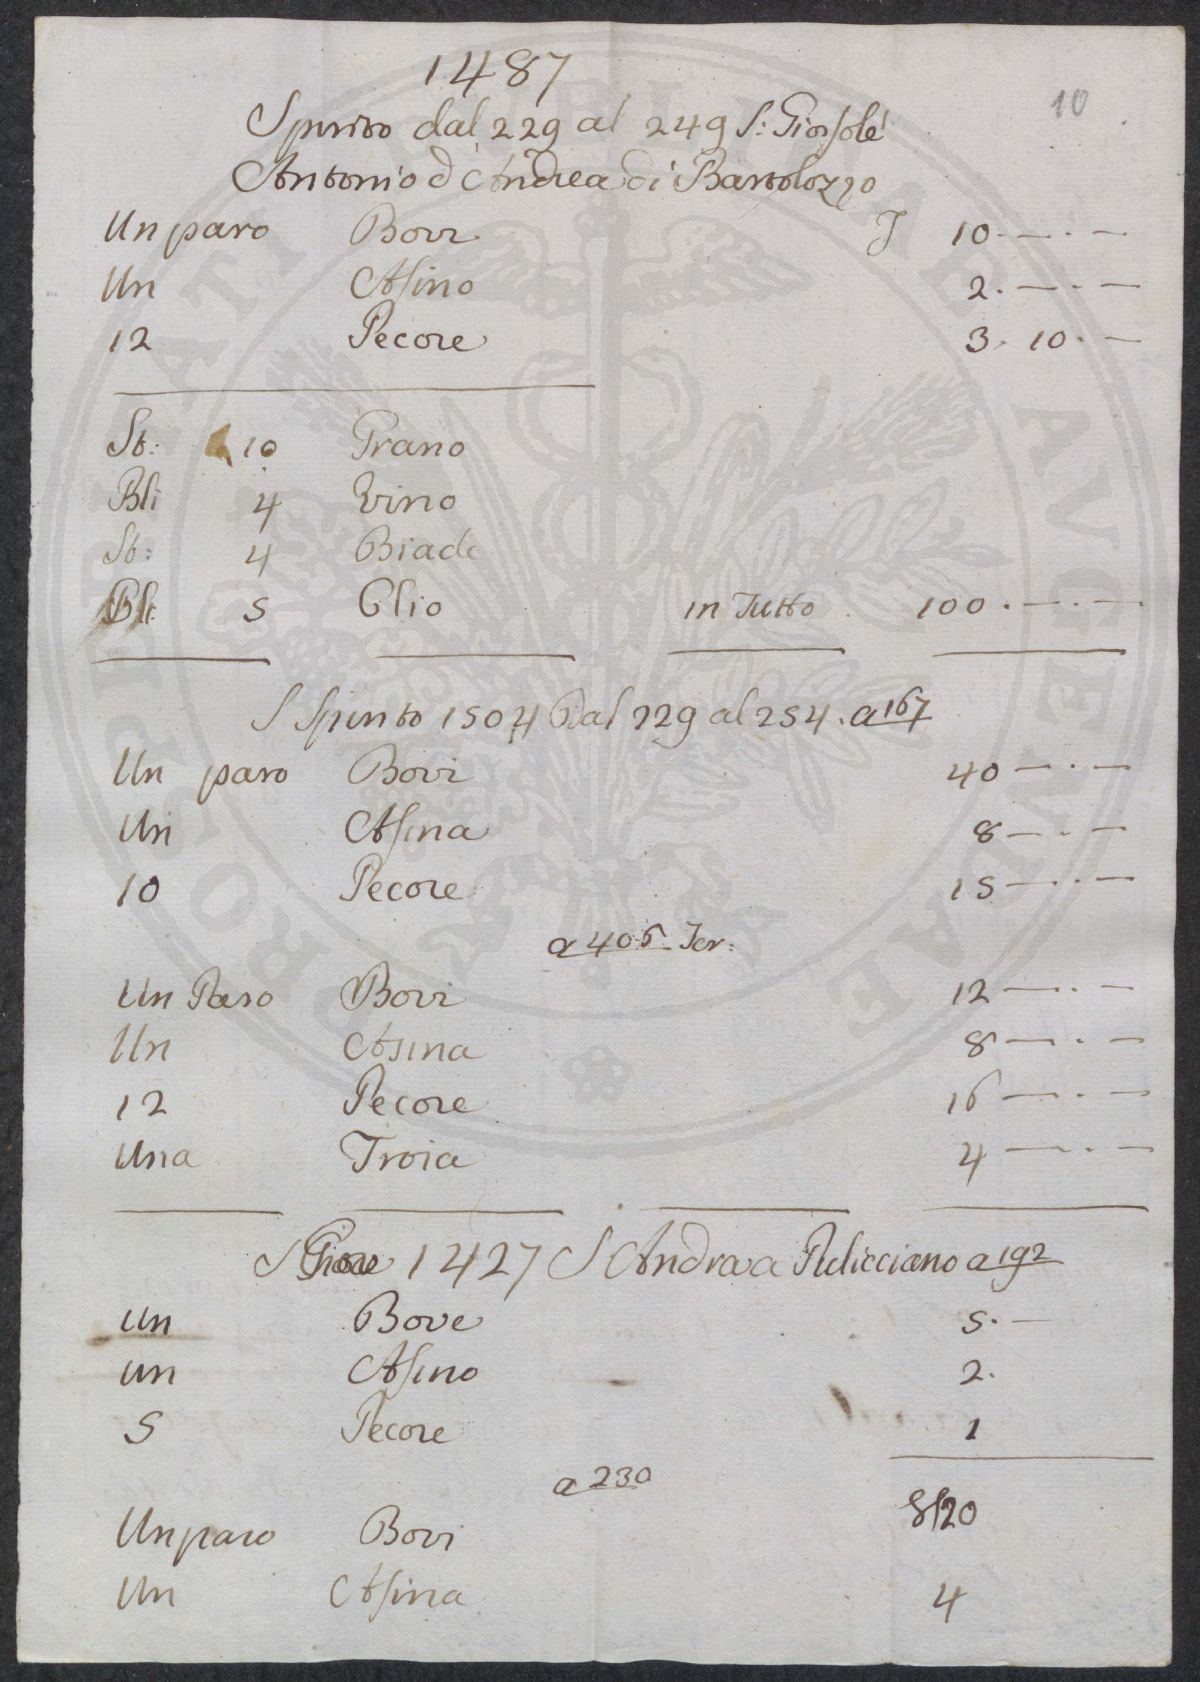 10
1487
Spirito dal 229 al 249 S: Giorsolè
Antonio d'Andrea di Bartolozzo
Un paro Bovi F 10.—.—
Un Asino 2.—.—
12 Pecore 3. 10.—
St: 10 Grano
Bli 4 Vino
St: 4 Biade
Bli: 5 Olio in Tutto 100.—.—
S Spirito 1504 Dal 229 al 254. a 167
Un paro Bovi 40—.—
Un Asina 8—.—
10 Pecore 15—.—
a 406 Ter:
Un Paro Bovi 12—.—
Un Asina 8—.—
12 Pecore 16—.—
Una Troia 4—.—
S 1427 S Andrea a Pulicciano a 192
Un Bove 5.—
un Asino 2.
5 Pecore 1
8
a 230
Un paro Bovi 20
Un Asina 4
PROSPERITATI PUBLICAE AUGENDAE